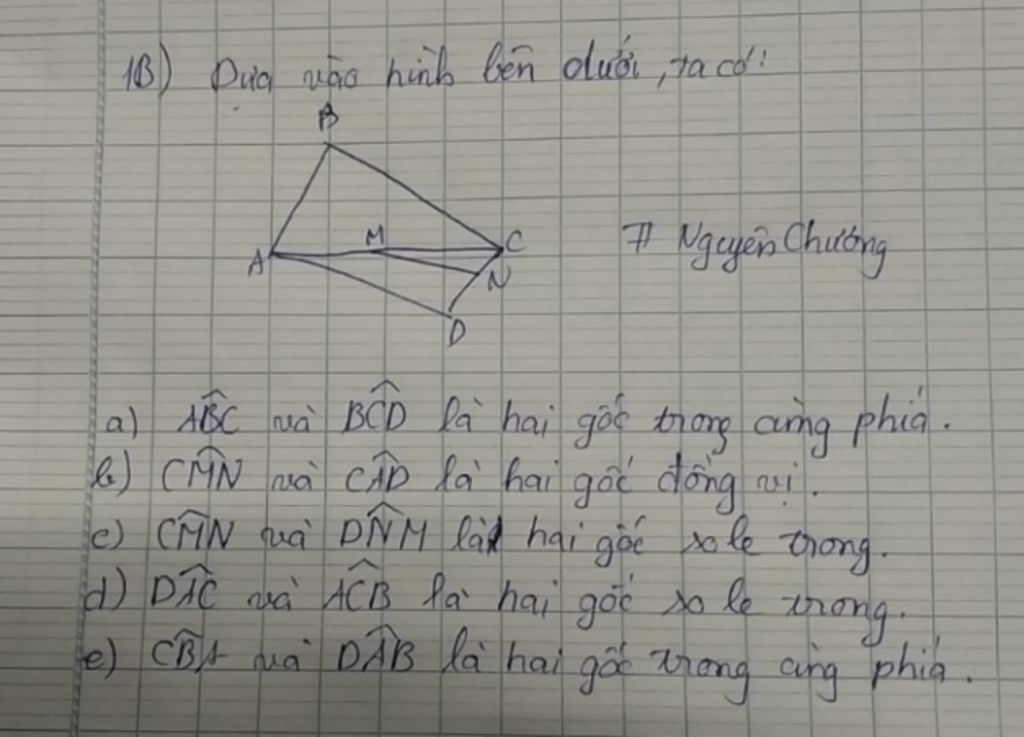 1B) Dựa vào hình bên dưới, ta có:
B
M
C
# Nguyên Chương
A
N
D
a) ABC và BCD là hai góc trong cùng phía.
b) CMN và CAD là hai góc đồng vị.
c) CMN và DNM là hai góc so le trong.
d) DAC và ACB là hai góc so le trong.
e) CBA và DAB là hai góc trong cùng phía.